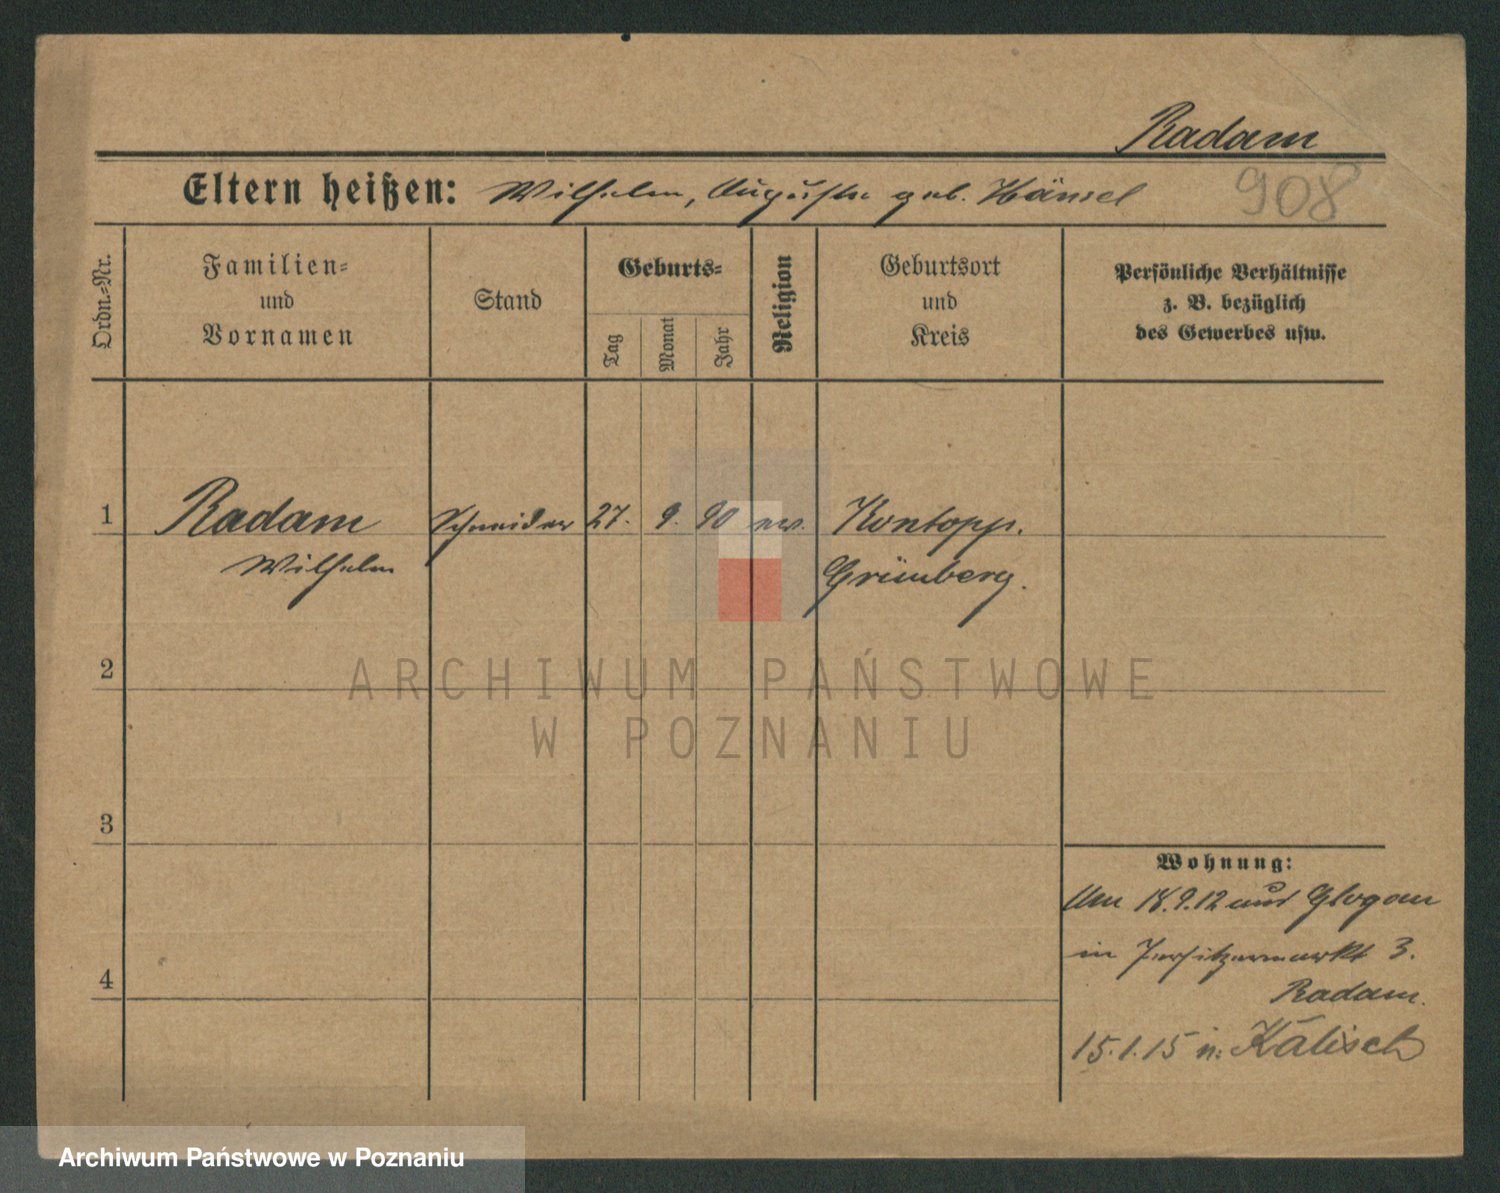 Radam
Eltern heißen: Wilhelm, Auguste geb. Hänsel
908
Ordn.-Nr.
Familien-
und
Vornamen
Stand
Geburts-
Tag
Monat
Jahr
Religion
Geburtsort
und
Kreis
Persönliche Verhältnisse
z. B. bezüglich
des Gewerbes usw.
1 Radam Schneider 27. 9. 90 ev. Kontopp.
Wilhelm Grünberg.
2
ARCHIWUM PAŃSTWOWE
W POZNANIU
3
Wohnung:
Am 18.9.12 aus Glogau
in Jersitzermarkt 3.
4
Radam.
15.1.15 n. Kalisch
Archiwum Państwowe w Poznaniu